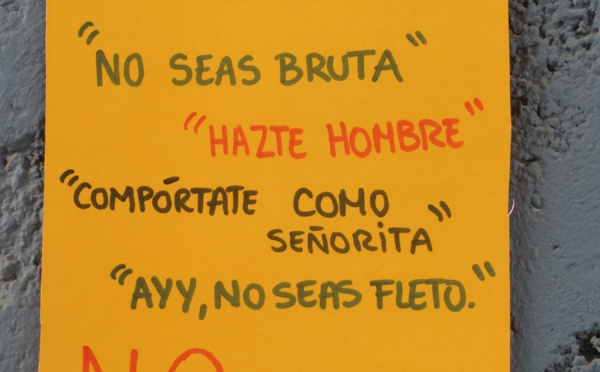 "NO SEAS BRUTA"
"HAZTE HOMBRE"
"COMPÓRTATE COMO
SEÑORITA"
"AYY, NO SEAS FLETO."
NO